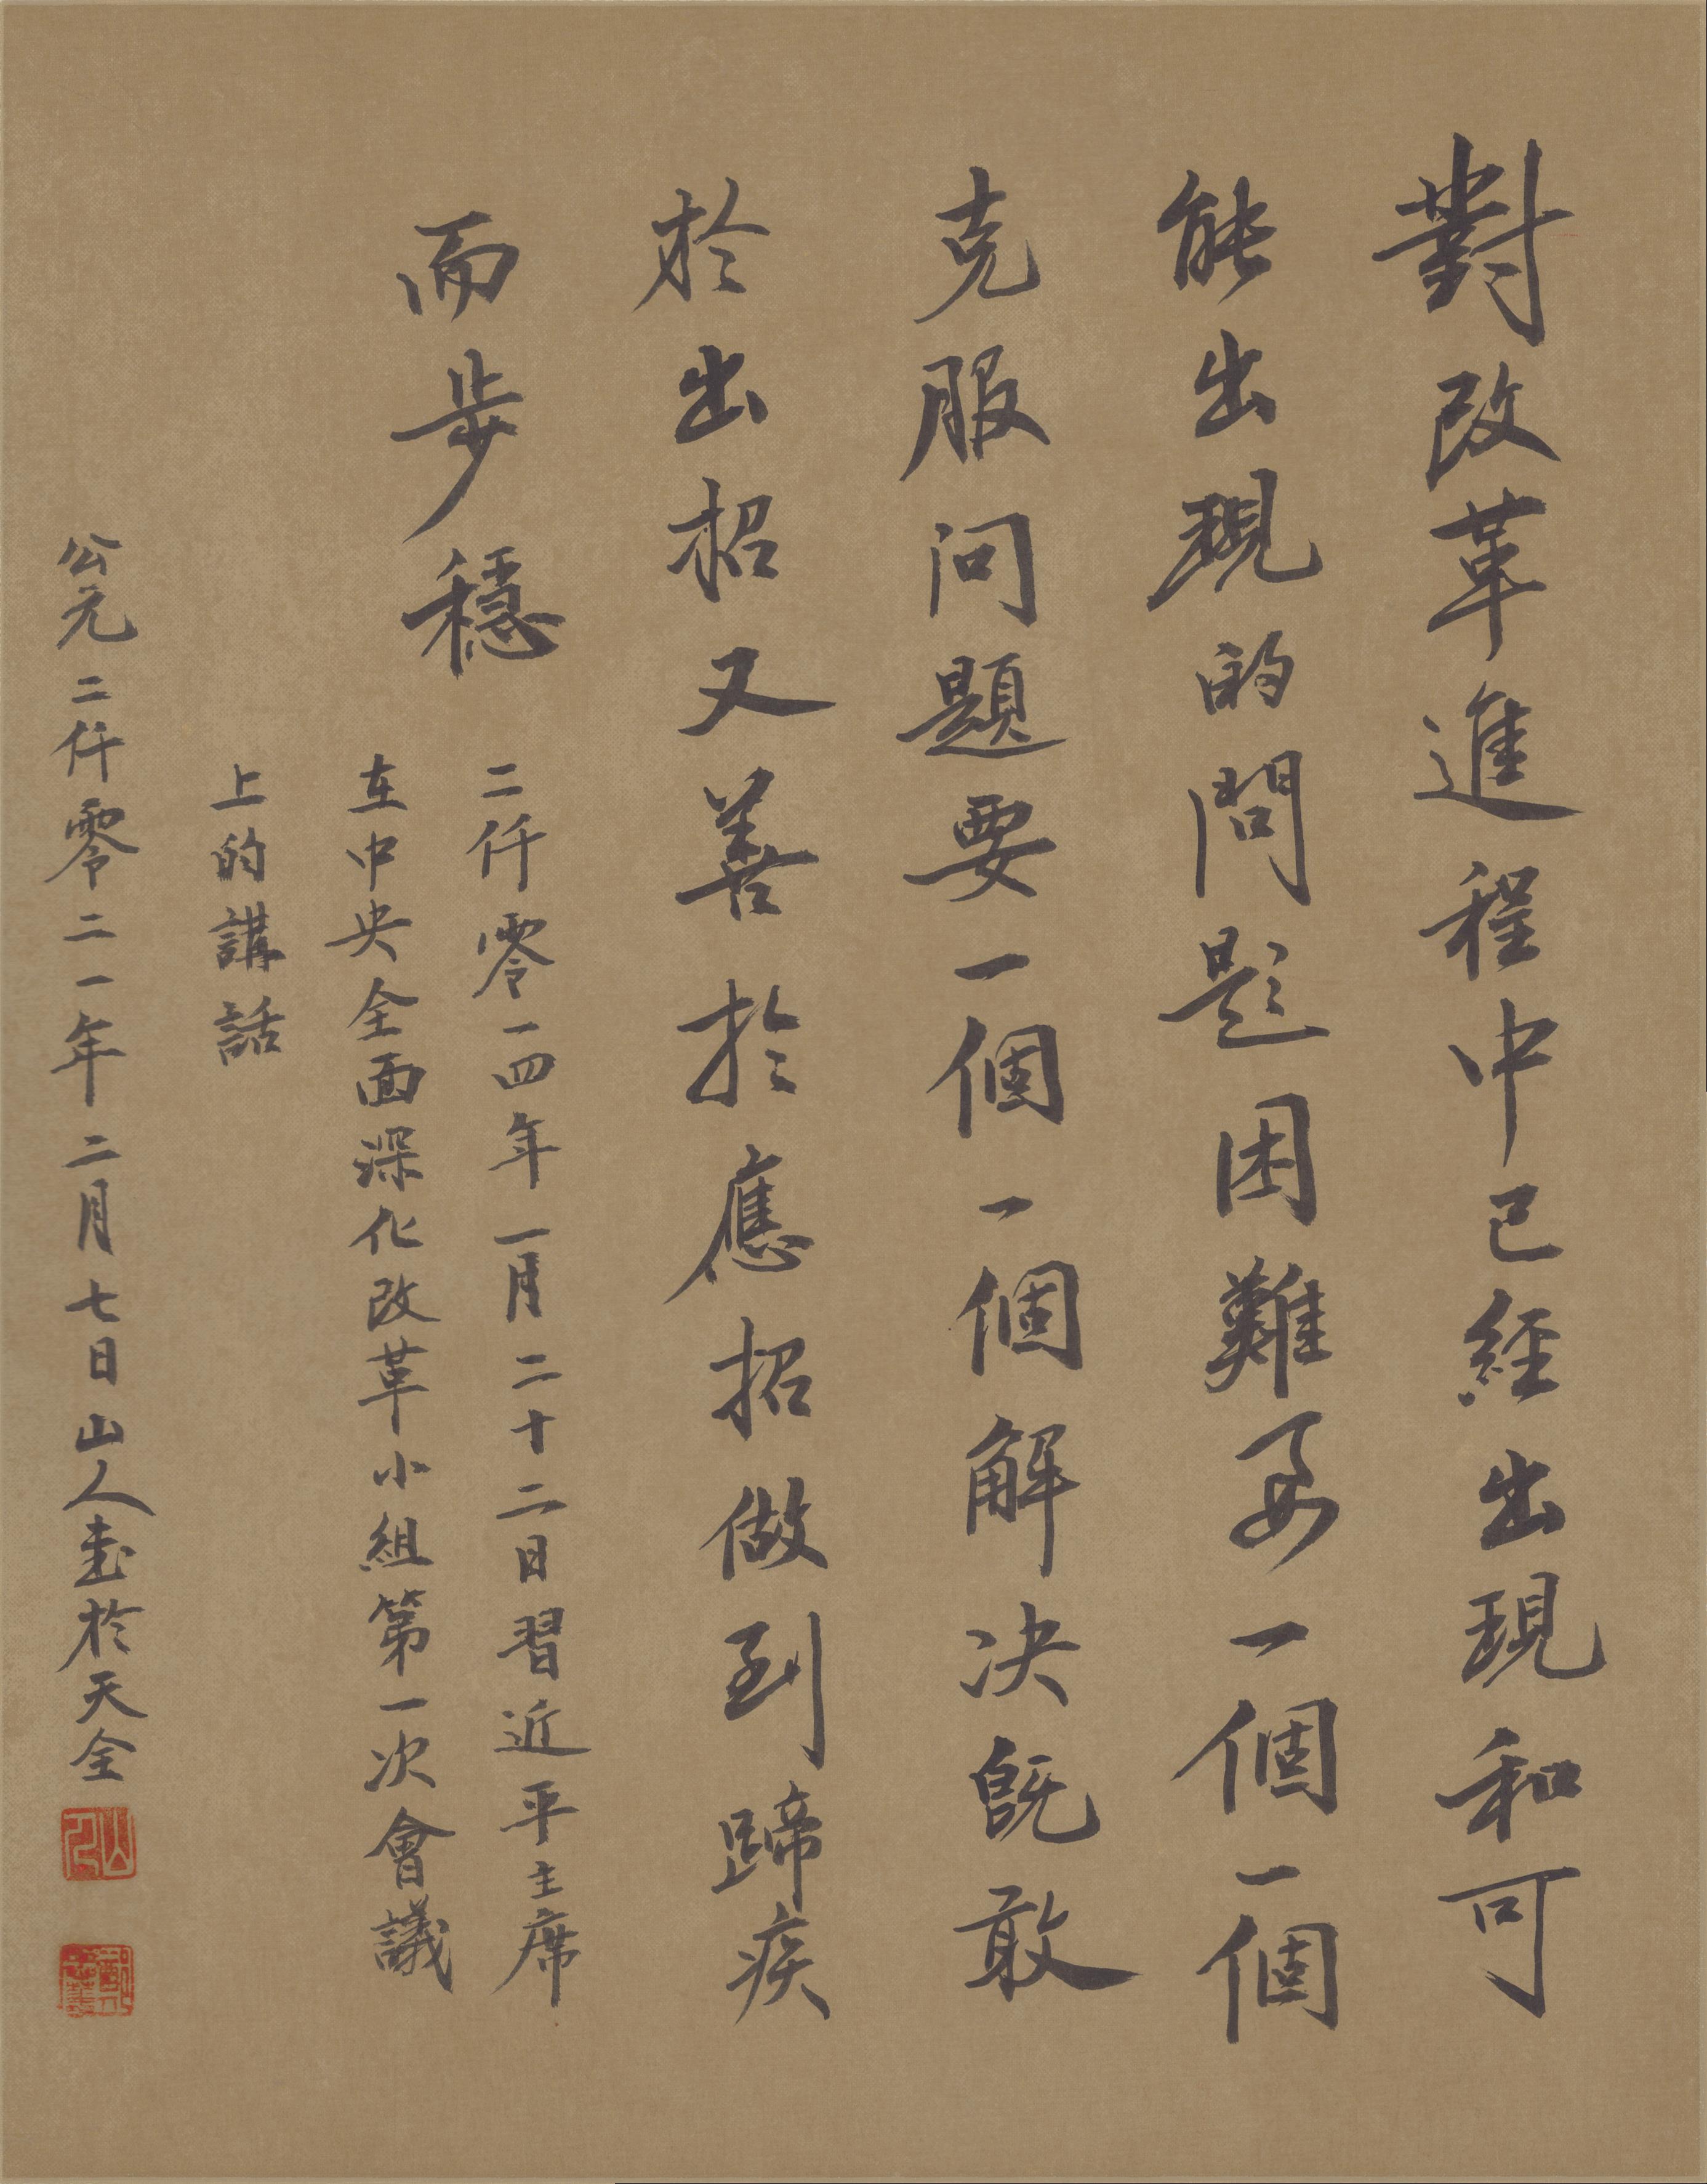 對改革進程中已經出現和可
能出現的問題困難要一個一個
克服问題要一個一個解決既敢
於出招又善於應招做到蹄疾
而步穩
二仟零一四年一月二十二日習近平主席
在中央全面深化改革小組第一次會議
上的講話
公元二仟零二一年二月七日山人書於天全
山人